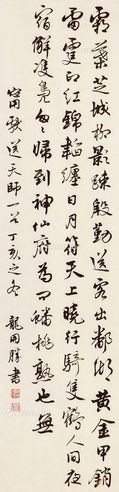 霜葉芝城柳影踈殷勤送客出鄱湖黃金甲鎖
雷霆印紅錦韜纏日月符天上曉行騎隻鶴人間夜
宿解雙鳧怱怱歸到神仙府為問蟠桃熟也無
寧獻王送天師一首丁亥之冬 龍國勝書